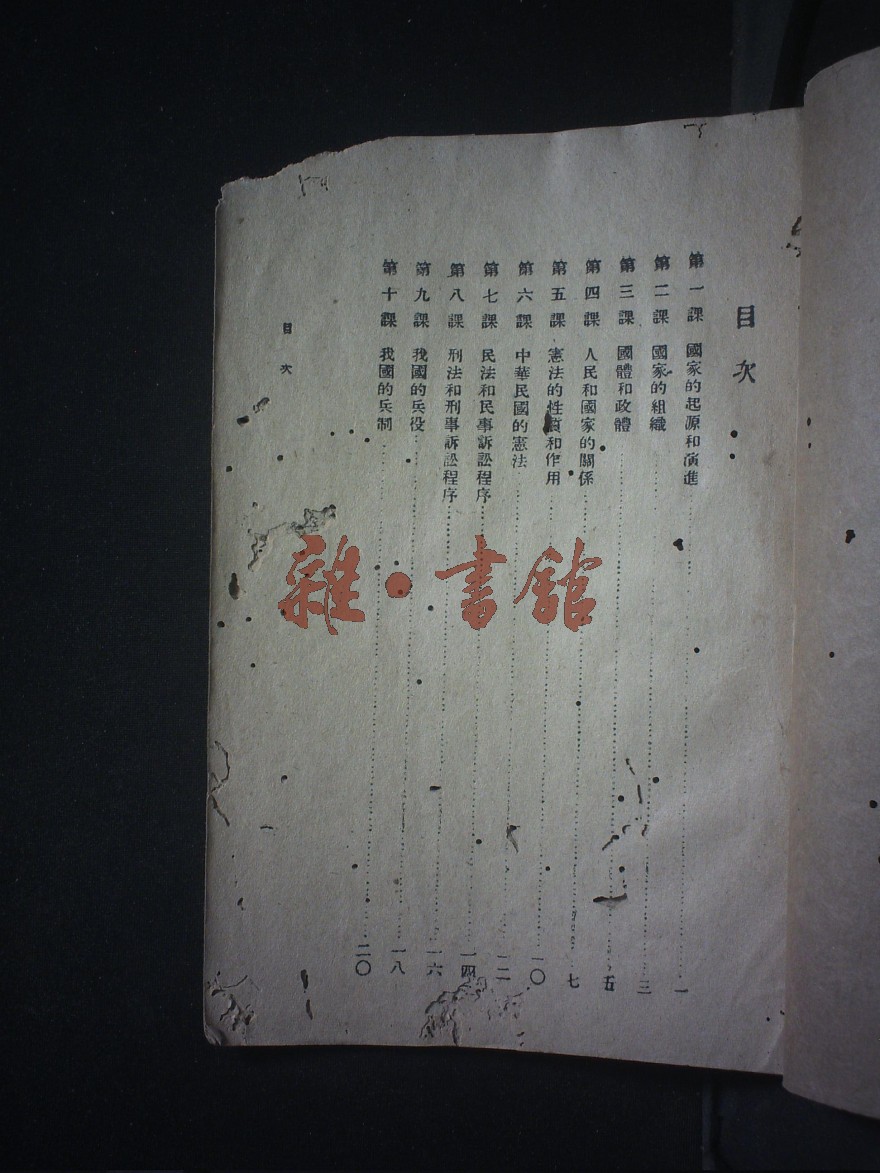 目次
第一課 國家的起源和演進 一
第二課 國家的組織 三
第三課 國體和政體 五
第四課 人民和國家的關係 七
第五課 憲法的性質和作用 一〇
第六課 中華民國的憲法 一二
第七課 民法和民事訴訟程序 一四
第八課 刑法和刑事訴訟程序 一六
第九課 我國的兵役 一八
第十課 我國的兵制 二〇
目次
雜·書館